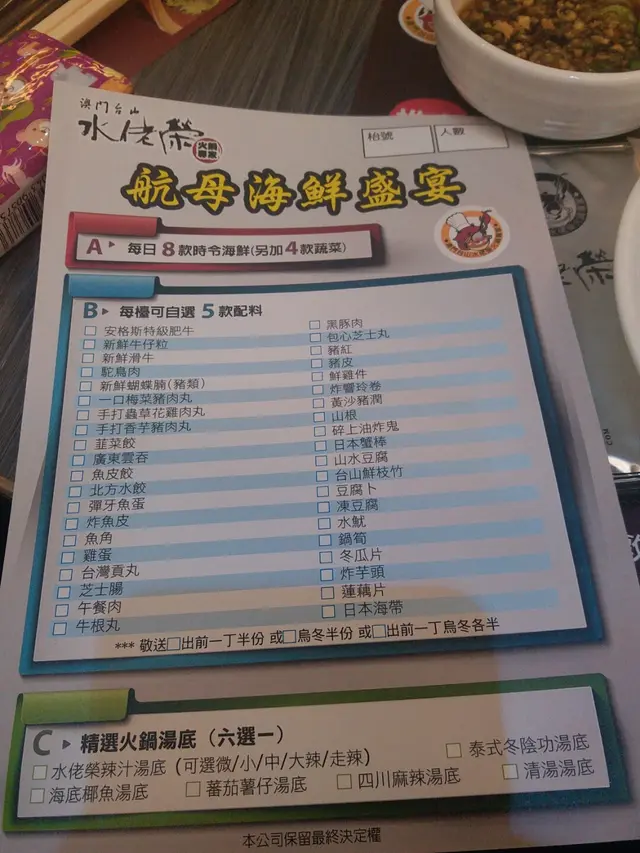 澳門台山
水佬榮
火鍋專家
枱號
人數
航母海鮮盛宴
A 每日8款時令海鮮(另加4款蔬菜)
B 每檯可自選 5 款配料
安格斯特級肥牛
新鮮牛仔粒
新鮮滑牛
駝鳥肉
新鮮蝴蝶腩(豬類)
一口梅菜豬肉丸
手打蟲草花雞肉丸
手打香芋豬肉丸
韮菜餃
廣東雲吞
魚皮餃
北方水餃
彈牙魚蛋
炸魚皮
魚角
雞蛋
台灣貢丸
芝士腸
午餐肉
牛根丸
黑豚肉
包心芝士丸
豬紅
豬皮
鮮雞件
炸響玲卷
黃沙豬潤
山根
碎上油炸鬼
日本蟹棒
山水豆腐
台山鮮枝竹
豆腐卜
凍豆腐
水魷
鍋筍
冬瓜片
炸芋頭
蓮藕片
日本海帶
*** 敬送□出前一丁半份 或□烏冬半份 或□出前一丁烏冬各半
C 精選火鍋湯底（六選一）
水佬榮辣汁湯底（可選微/小/中/大辣/走辣）
泰式冬陰功湯底
海底椰魚湯底
蕃茄薯仔湯底
四川麻辣湯底
清湯湯底
本公司保留最終決定權